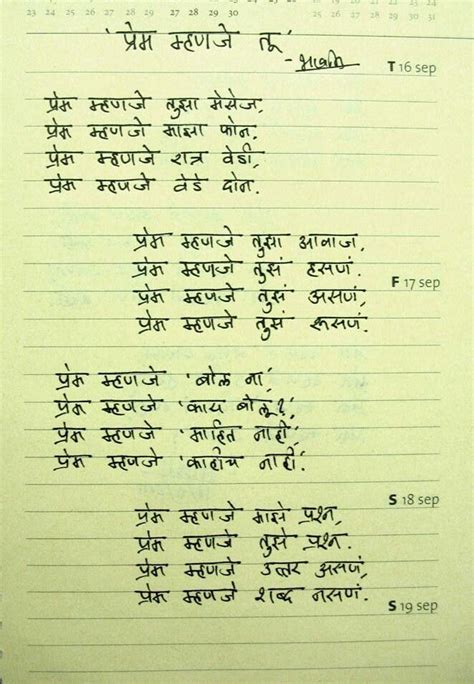 23 24 25 26 27 28 29 30
25 26 27 28 29 30
23 24 25 26 27 28 29 30 31
'प्रेम म्हणजे तू'
T 16 sep
प्रेम म्हणजे तुझा मेसेज,
प्रेम म्हणजे माझा फोन.
प्रेम म्हणजे रात्र वेडी,
प्रेम म्हणजे वेडे दोन.
प्रेम म्हणजे तुझा आवाज,
प्रेम म्हणजे तुझं हसणं.
F 17 sep
प्रेम म्हणजे तुझं असणं,
प्रेम म्हणजे तुझं रूसणं.
प्रेम म्हणजे 'बोल ना',
प्रेम म्हणजे 'काय बोलू?',
प्रेम म्हणजे 'माहित नाही',
प्रेम म्हणजे 'काहीच नाही'.
S 18 sep
प्रेम म्हणजे माझे प्रश्न,
प्रेम म्हणजे तुझे प्रश्न.
प्रेम म्हणजे उत्तर असणं,
प्रेम म्हणजे शब्द नसणं.
S 19 sep